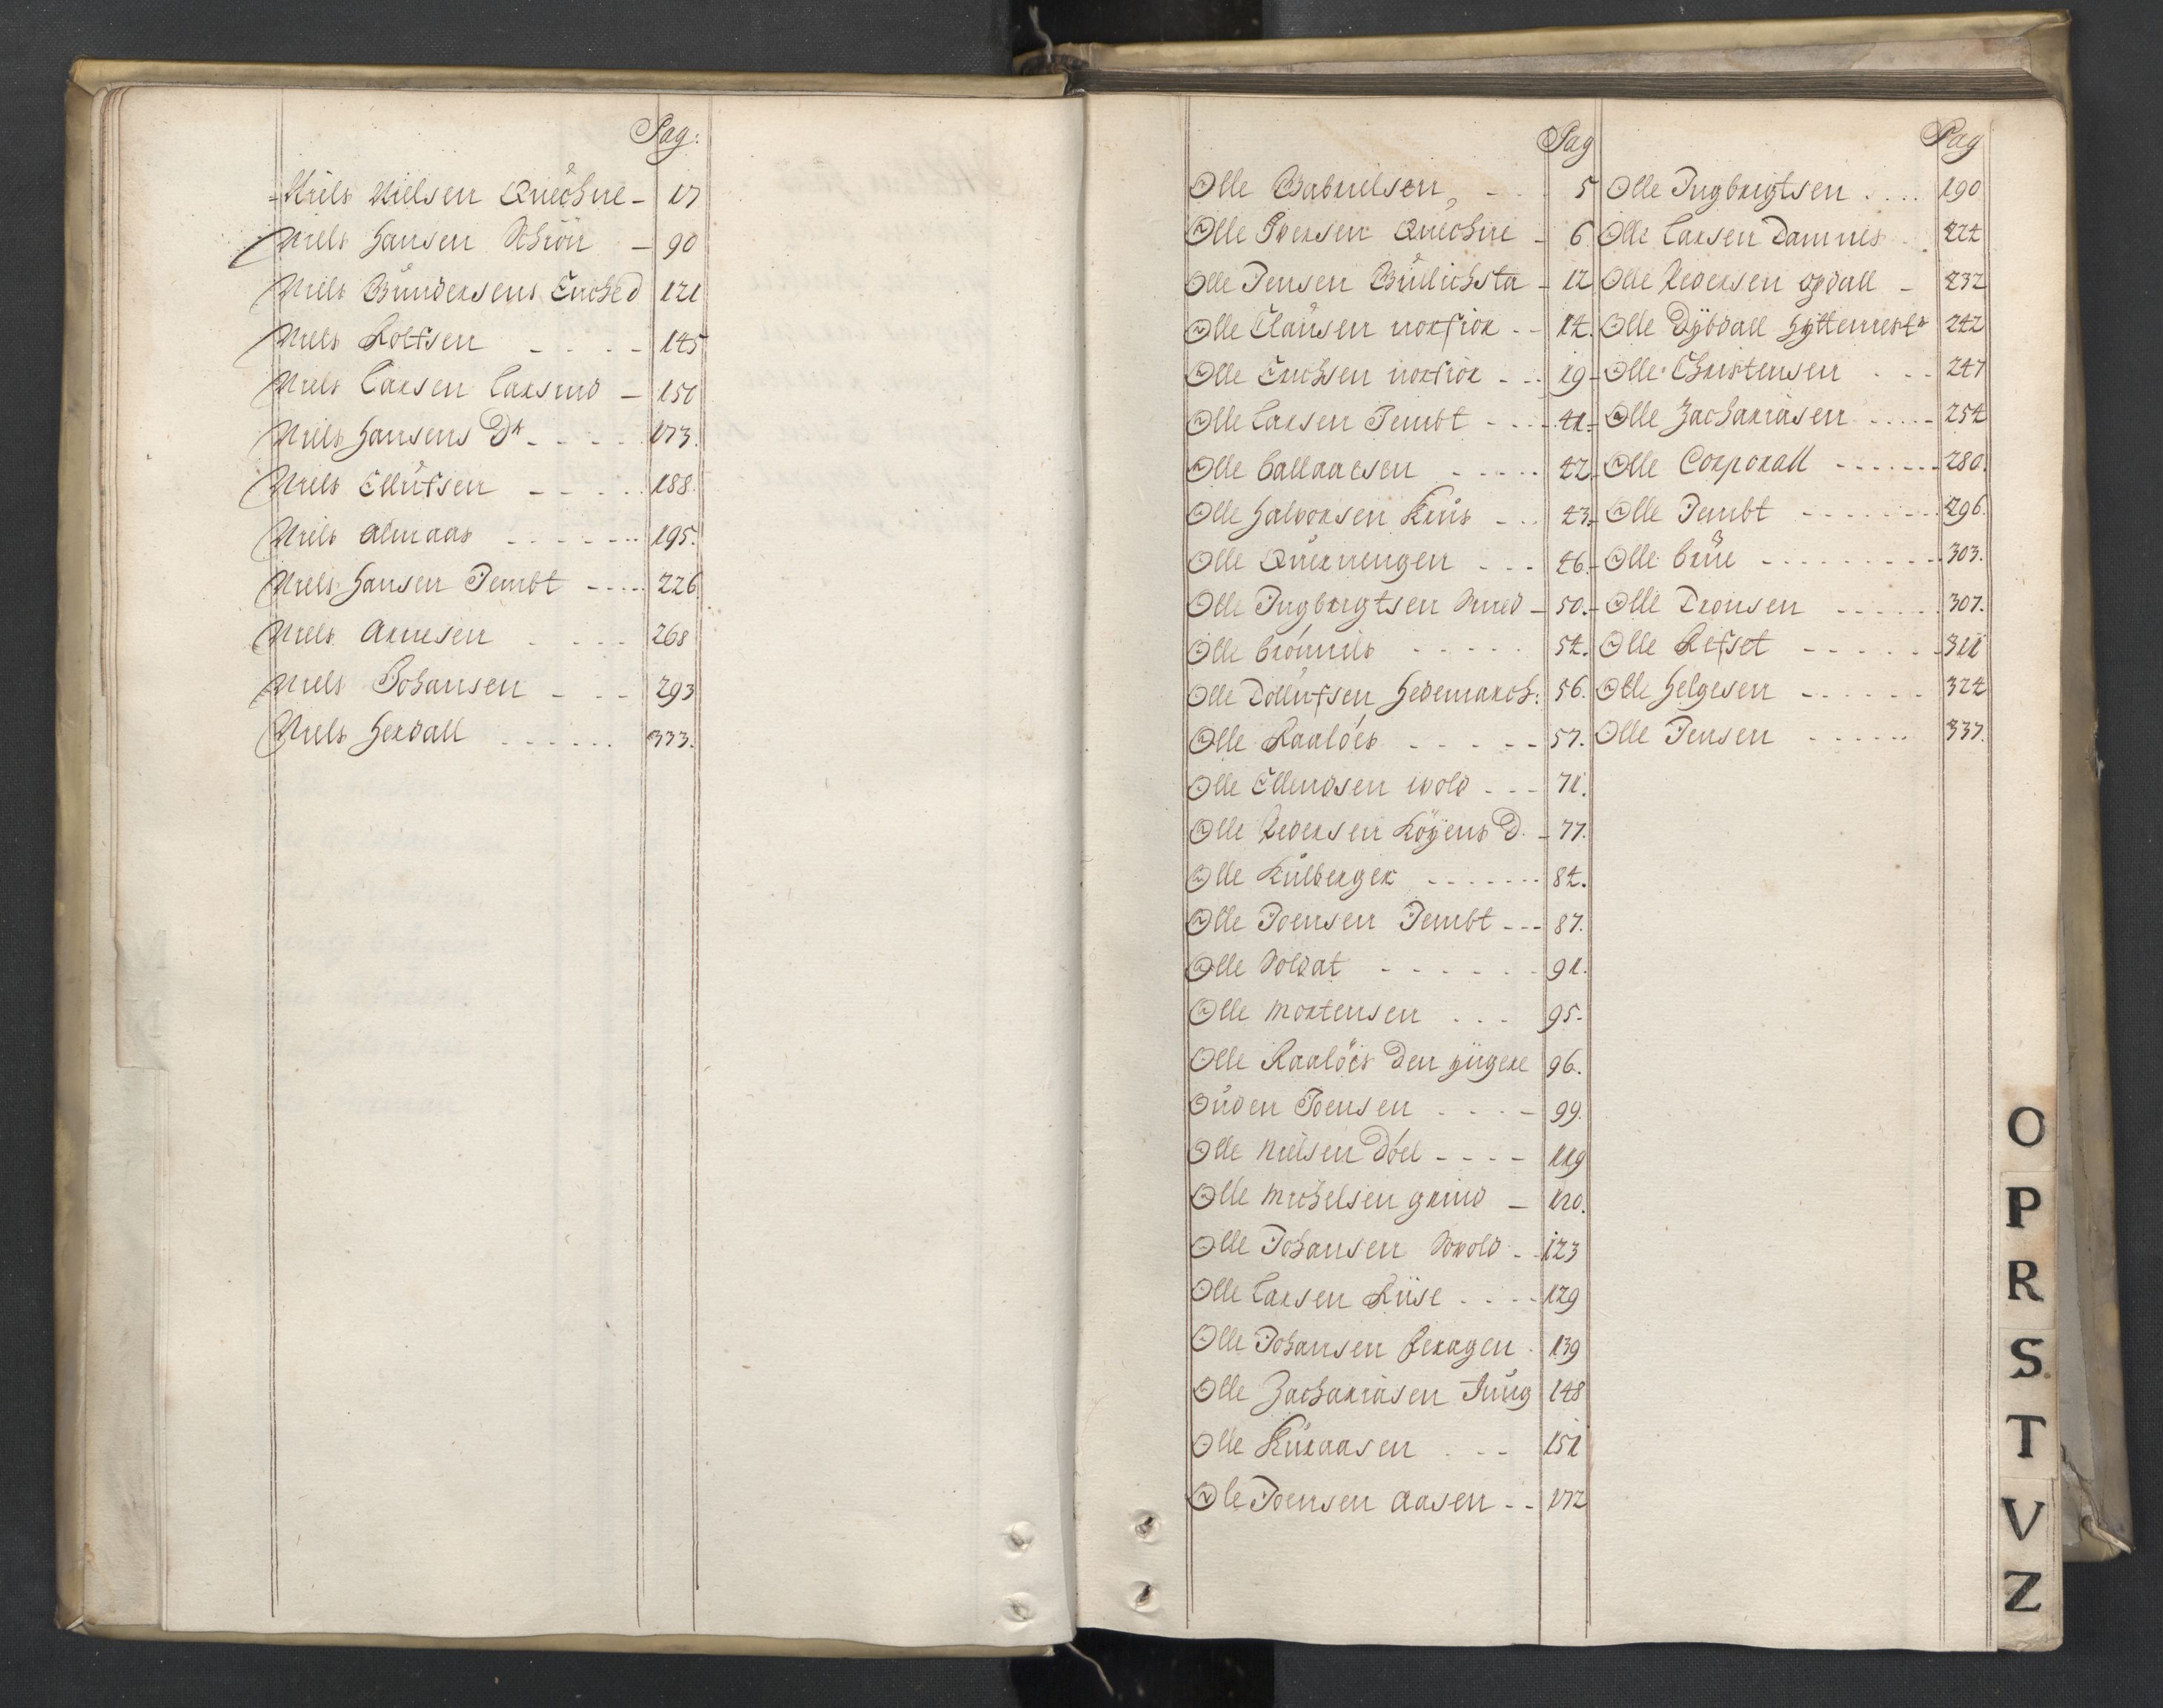 Pag:
Niels Nielsen Quechne - 17
Niels Hansen Schiön - 90
Niels Gundersens Encked 121
Niels Rolfsen - - - - 145
Niels Larsen Larsmo - 150
Niels Hansens Dr - - - - 173.
Niels Ellufsen - - - - 188.
Niels Almaas - - - - - - 195.
Niels Hansen Jembt - - - - 226
Niels Arnesen - - - - 268
Niels Johansen - - - 293
Niels Herdall - - - - - - 333.
Pag
Olle Gabrielsen, - - 5
Olle Iversen Quechne - 6
Olle Jensen Gullichsta - 12
Olle Clausen norfior - - 14.
Olle Erichsen norfior - - - 19
Olle Larsen Jembt - - - 41
Olle Callaaesen - - - - - 42
Olle Halvorsen Kris - - - 43
Olle Quernengen - - - 46.
Olle Ingbrigtsen Smed - 50.
Olle Crömnils - - - - - 54.
Olle Dollufsen Hedemarch: 56.
Olle Raalöes - - - - - 57.
Olle Ellendsen wold - - - 71.
Olle Pedersen Röyens D. - 77.
Olle Kulberger - - - - - - - 84.
Olle Joensen Jembt - - - 87.
Olle Soldat - - - - - - 91.
Olle Mortensen - - - 95.
Olle Raalöes den yngere 96.
Ouden Joensen - - - - 99.
Olle Nielsen Döel - - - - 119
Olle Michelsen grind - 120.
Olle Johansen Sowold - - 123
Olle Larsen Riise - - - - 129
Olle Johansen Feragen - 139
Olle Zachariasen Jung 148
Olle Kuraasen - - - 151
Ole Joensen Aasen - - 172
Pag
Olle Ingbrigtsen - - - - 190
Olle Larsen Damnes - 224
Olle Pedersen Opdall - 232
Olle Dybdall Hyttemestr 242
Olle Christensen - - - 247
Olle Zachariasen - - - - - 254
Olle Corporall - - - - - - - 280.
Olle Jembt - - - - - - - - 296.
Olle Crue - - - - - - - - - 303.
Olle Dronsen - - - - - - 307.
Olle Refset - - - - - - 311
Olle Helgesen - - - - - - 324
Olle Jensen - - - - - - 337.
O
P
R
S.
T
V
Z